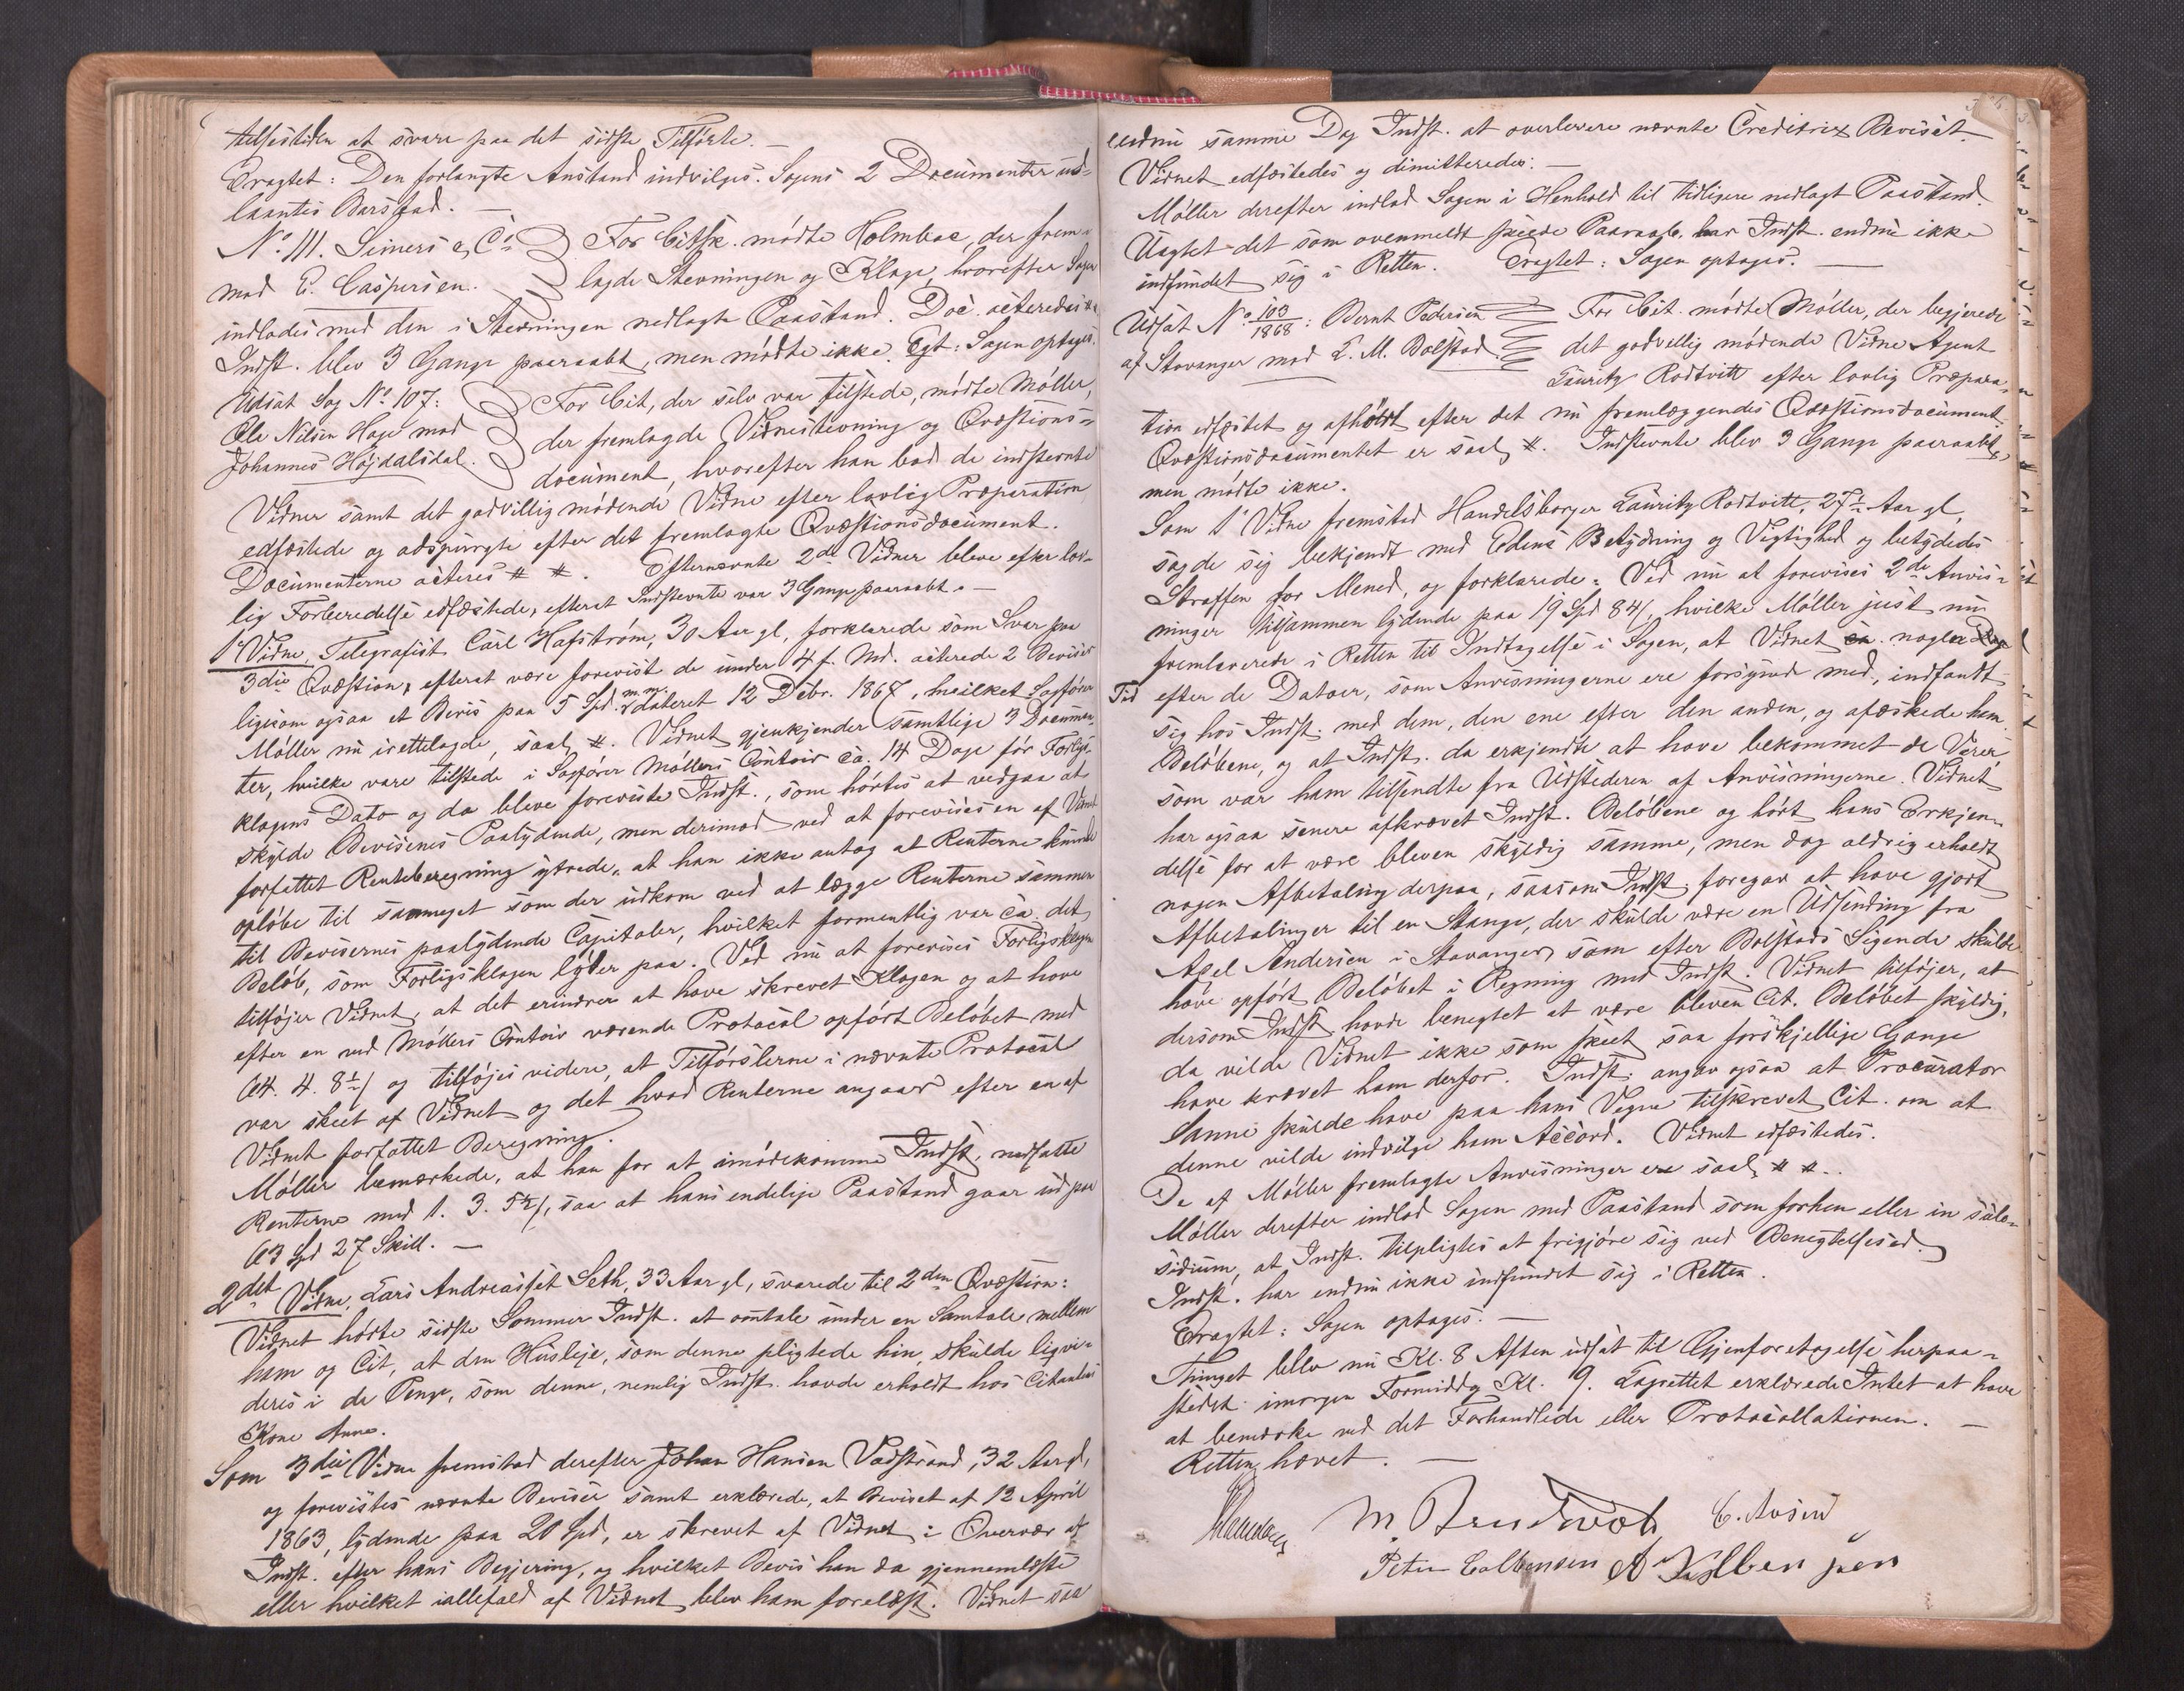 telsestiden at svare paa det sidste Tilførte. —
Eragtet: Den forlangte Anstand indvilges. Sagens 2 Documenter ud-
laantes Barstad. —
No. 111. Seiners & Co For Citsk. mødte Holmboe, der frem-
mod E. Caspersen. lagde Stevningen og Klage, hvorefter Sagen
indlodes med den i Stevningen nedlagte Paastand. Doc. acteredes #.
Indst. blev 3 Gange paaraabt, men mødte ikke. Egt: Sagen optages.
Udsat Sag No. 107: For Cit, der selv var tilstede, mødte Møller,
Ole Nilsen Hage mod der fremlagde Vidnestevning og Qvæstions-
Johannes Højdalsdal. document, hvorefter han bad de indstevnte
Vidner samt det godvillig mødende Vidne efter lovlig Præparation
edfæstede og adspurgte efter det fremlagte Qvæstionsdocument.
Documenterne acteres # #. Efternævnte 2de Vidner bleve efter lov-
lig Forberedelse edfæstede, efterat Indstevnte var 3 Gange paaraabt. —
1. Vidne, Telegrafist Carl Hafstrøm, 30 Aar gl, forklarede som Svar paa
3die Qvæstion, efterat være forevist de under 4 f. Md. acterede 2 Beviser
ligesom ogsaa et Bevis paa 5 Spd. m. m. dateret 12 Debr. 1867, hvilket Sagfører
Møller nu irettelagde, saal. #. Vidnet gjenkjender samtlige 3 Documen-
ter, hvilke vare tilstede i Sagfører Møllers Contoir ca. 14 Dage før Forligs-
klagens Dato og da bleve foreviste Indst., som hørtes at vedgaa at
skylde Bevisenes Paalydende, men derimod ved at forevises en af Vidnet
forfattet Renteberegning ytrede, at han ikke antog at Renterne kunde
opløbe til saameget som der udkom ved at lægge Renterne sammen
til Bevisernes paalydende Capitaler, hvilket formentlig var ca. det
Beløb, som Forligsklagen lyder paa. Ved nu at forevises Forligsklagen
tilføjer Vidnet, at det erindrer at have skrevet Klagen og at have
efter en ved Møllers Contoir værende Protocol opført Beløbet med
64. 4. 8 og tilføjes videre, at Tilførslerne i nævnte Protocol
var skeet af Vidnet og det hvad Renterne angaar efter en af
Vidnet forfattet Beregning.
Møller bemærkede, at han for at imødekomme Indst. nedsatte
Renterne med 1. 3. 5, saa at hans endelige Paastand gaar ud paa
63 Spd 27 Skill. —
2det Vidne, Lars Andreassøt Seth, 33 Aar gl, svarede til 2den Qvæstion:
Vidnet hørte sidste Sommer Indst. at omtale under en Samtale mellem
ham og Cit, at den Husleje, som denne pligtede hin, skulde liqvi-
deres i de Penge, som denne, nemlig Indst. havde erholdt hos Citantens
Kone Anna.
Som 3die Vidne fremstod derefter Johan Hansen Vadstrand, 32 Aar gl,
og forevistes nævnte Beviser samt erklærede, at Beviset af 12 April
1863, lydende paa 20 Spd, er skrevet af Vidnet i Overvær af
Indst. efter hans Begjering, og hvilket Bevis han da gjennemlæste
eller hvilket iallefald af Vidnet blev ham forelæst. Vidnet saa
endnu samme Dag Indst. at overlevere nævnte Creditrix Beviset.
Vidnet edfæstedes og dimitteredes. —
Møller derefter indlod Sagen i Henhold til tidligere nedlagt Paastand.
Uagtet det som ovenmeldt skeede Paaraab, har Indst. endnu ikke
indfundet sig i Retten. Eragtet: Sagen optages. —
Udsat No. 103/1868: Bernt Pedersen For Cit. mødte Møller, der begjerede
af Stavanger mod L. M. Bolstad. det godvillig mødende Vidne Agent
Lauritz Rodtvitt efter lovlig Præpara-
tion edfæstet og afhørt efter det nu fremlæggendes Qvæstionsdocument.
Qvæstionsdocumentet er saal. #. Indstevnte blev 3 Gange paaraabt,
men mødte ikke.
Som 1. Vidne fremstod Handelsborger Lauritz Rodtvitt, 27 Aar gl,
sagde sig bekjendt med Edens Betydning og Vigtighed og betydedes
Straffen for Mened, og forklarede: Ved nu at forevises 2de Anvis-
ninger tilsammen lydende paa 19 Spd 84, hvilke Møller just nu
fremleverede i Retten til Indtagelse i Sagen, at Vidnet nogen
Tid efter de Datoer, som Anvisningerne ere forsynede med, indfandt
sig hos Indst. med dem, den ene efter den anden, og afæskede ham
Beløbene, og at Indst. da erkjendte at have bekommet de Varer
som var ham tilsendte fra Udstederen af Anvisningerne. Vidnet
har ogsaa senere afkrævet Indst. Beløbene og hørt hans Erkjen-
delse for at være bleven skyldig samme, men dog aldrig erholdt
nogen Afbetaling derpaa, saasom Indst. foregav at have gjort
Afbetalinger til en Stange, der skulde være en Udsending fra
Axel Andersen i Stavanger som efter Bolstads Sigende skulde
have opført Beløbet i Regning med Indst. Vidnet tilføjer, at
dersom Indst. havde benegtet at være bleven Cit. Beløbet skyldig,
da vilde Vidnet ikke som skeet saa forskjellige Gange
have krævet ham derfor. Indst. angav ogsaa at Procurator
Sanne skulde have paa hans Vegne tilskrevet Cit. om at
denne vilde indvilge ham Accord. Vidnet edfæstedes.
De af Møller fremlagte Anvisninger ere saal. # #.
Møller derefter indlod Sagen med Paastand som forhen eller in subs-
sidium, at Indst. tilpligtes at frigjøre sig ved Benegtelsesed.
Indst. har endnu ikke indfundet sig i Retten.
Eragtet: Sagen optages. —
Thinget blev nu Kl. 8 Aften udsat til Gjenforetagelse herpaa-
stedet imorgen Formiddag Kl. 9. Lagrettet erklærede Intet at have
at bemærke ved det Forhandlede eller Protocollationen. —
Retten hævet. —
C. Ausen
Peter